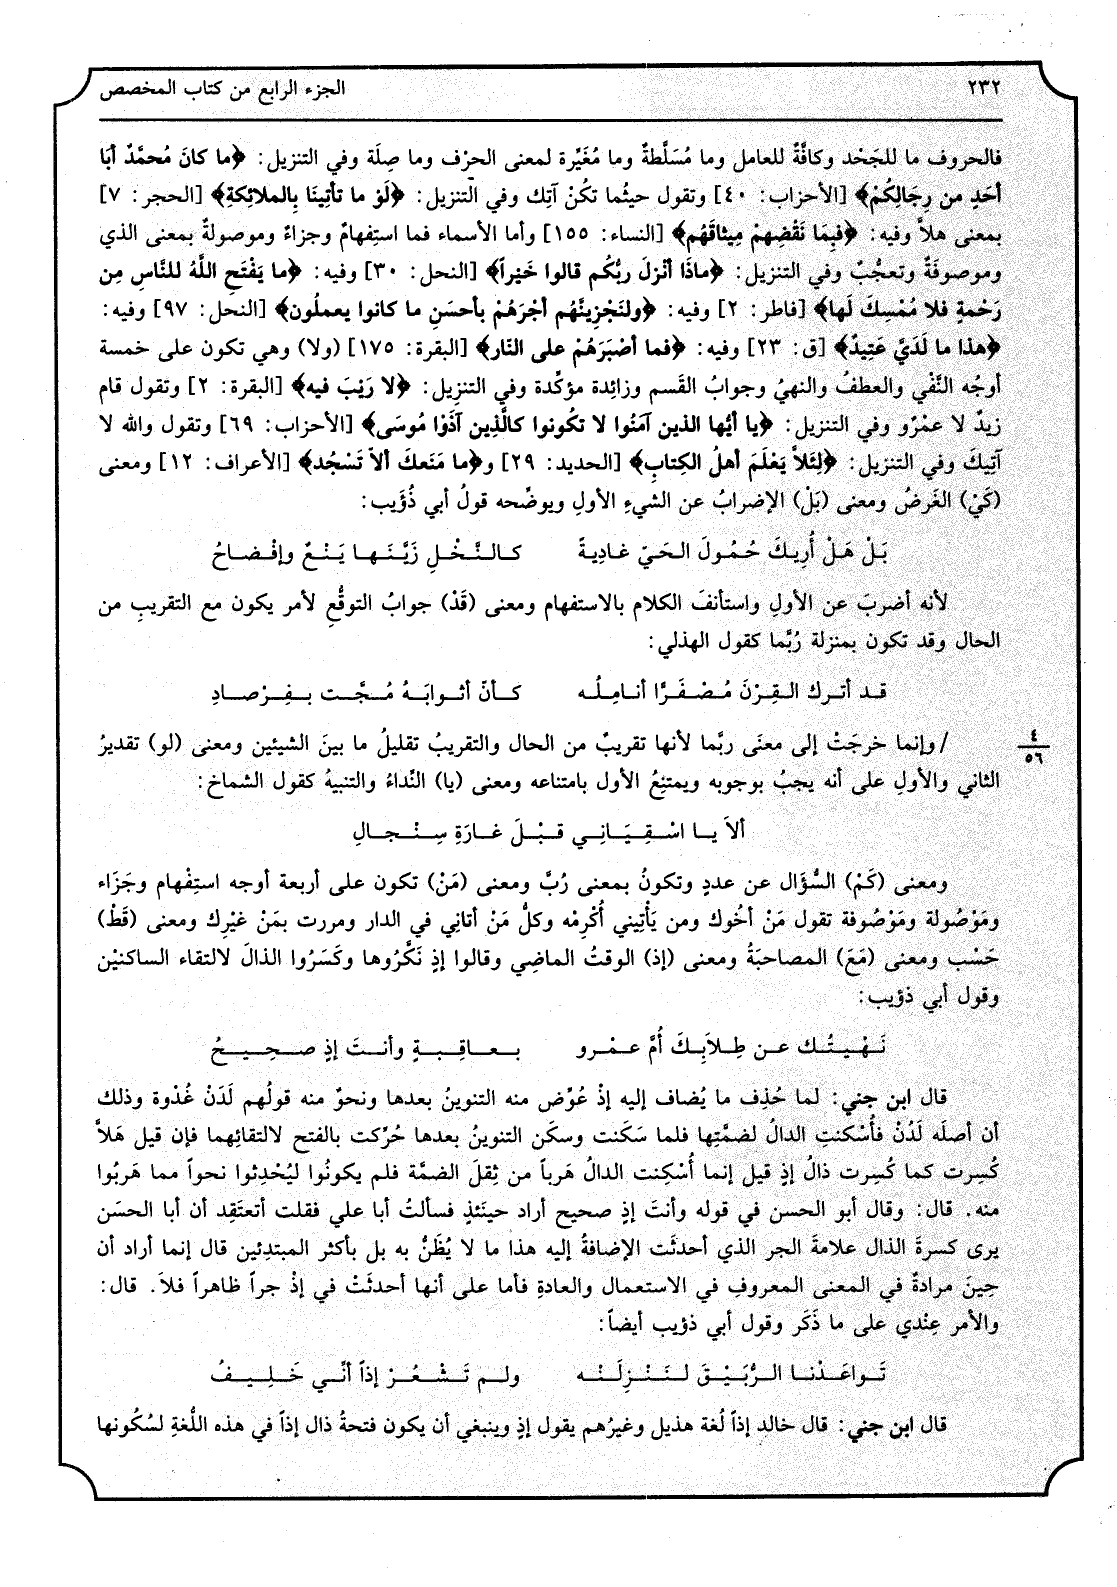 ٢٣٢
الجزء الرابع من كتاب المخصص
فالحروف ما للجَحْد وكافَّةٌ للعامل وما مُسَلَّطةٌ وما مُغَيِّرة لمعنى الحرْف وما صِلَة وفي التنزيل: ﴿ما كانَ مُحمَّدٌ أبَا
أحَدٍ من رِجَالِكُمْ﴾ [الأحزاب: ٤٠] وتقول حيثُما تكُنْ آتِك وفي التنزيل: ﴿لَوْ ما تأتِينَا بِالملائِكةِ﴾ [الحجر: ٧]
بمعنى هلاَّ وفيه: ﴿فبِمَا نَقْضِهِمْ مِيثاقَهُم﴾ [النساء: ١٥٥] وأما الأسماء فما استِفهامٌ وجزاءٌ وموصولةٌ بمعنى الذي
وموصوفَةٌ وتعجُّبٌ وفي التنزيل: ﴿ماذَا أنْزلَ ربُّكُم قالوا خَيْراً﴾ [النحل: ٣٠] وفيه: ﴿ما يَفْتَحِ اللَّهُ للنَّاسِ مِن
رَحْمةٍ فلا مُمْسِكَ لَها﴾ [فاطر: ٢] وفيه: ﴿ولنَجْزِينَّهُم أجْرَهُمْ بأحسَنِ ما كانوا يعملُون﴾ [النحل: ٩٧] وفيه:
﴿هذا ما لَدَيَّ عَتِيدٌ﴾ [ق: ٢٣] وفيه: ﴿فما أصْبَرَهُمْ على النَّار﴾ [البقرة: ١٧٥] (ولا) وهي تكون على خمسة
أوجُه النَّفْي والعطفُ والنهيُ وجوابُ القَسم وزائدة مؤكِّدة وفي التنزِيل: ﴿لا رَيْبَ فيه﴾ [البقرة: ٢] وتقول قام
زيدٌ لا عمْرٌو وفي التنزيل: ﴿يا أيُّها الذين آمَنُوا لا تكُونوا كالَّذِين آذَوْا مُوسَى﴾ [الأحزاب: ٦٩] وتقول والله لا
آتِيكَ وفي التنزيل: ﴿لِئَلاَّ يَعْلَمَ أهلُ الكِتابِ﴾ [الحديد: ٢٩] و﴿ما مَنَعكَ ألاَّ تَسْجُد﴾ [الأعراف: ١٢] ومعنى
(كَيْ) الغَرضُ ومعنى (بَلْ) الإضرابُ عن الشيءِ الأولِ ويوضِّحه قولُ أبي ذُؤَيب:
بَلْ هَلْ أُرِيكَ حُمُولَ الحَيّ غادِيةً كالنَّخْلِ زَيَّنَها يَنْعٌ وإفْضاحُ
لأنه أضربَ عن الأولِ واستأنفَ الكلام بالاستفهام ومعنى (قَدْ) جوابُ التوقُّعِ لأمر يكون مع التقريبِ من
الحال وقد تكون بمنزلة رُبَّما كقول الهذلي:
قد أترك القِرْنَ مُصْفَرًّا أنامِلُه كأنّ أثوابَهُ مُجَّت بفِرْصادِ
/وإنما خرجَتْ إلى معنَى ربَّما لأنها تقريبٌ من الحال والتقريبُ تقليلُ ما بينَ الشيئين ومعنى (لو) تقديرُ
٤
٥٦
الثاني والأولِ على أنه يجبُ بوجوبه ويمتنِعُ الأول بامتناعه ومعنى (يا) النَّداءُ والتنبيهُ كقول الشماخ:
ألاَ يا اسْقِيَانِي قبْلَ غارَةِ سِنْجالِ
ومعنى (كَمْ) السُّؤَال عن عددٍ وتكونُ بمعنى رُبَّ ومعنى (مَنْ) تكون على أربعة أوجه استِفْهام وجَزَاء
ومَوْصُولة ومَوْصُوفة تقول مَنْ أخُوك ومن يَأْتِيني أُكْرِمْه وكلُّ مَنْ أتانِي في الدار ومررت بمَنْ غيْرِك ومعنى (قَطْ)
حَسْب ومعنى (مَعَ) المصاحبَةُ ومعنى (إذ) الوقتُ الماضِي وقالوا إذٍ نَكَّرُوها وكَسَرُوا الذالَ لالتقاء الساكنيْن
وقول أبي ذؤيب:
نَهْيتُك عن طِلاَبِكَ أُمَّ عمْرو بعاقِبةٍ وأنتَ إذٍ صحيحُ
قال ابن جني: لما حُذِف ما يُضاف إليه إذْ عُوِّض منه التنوينُ بعدها ونحوٌ منه قولُهم لَدَنْ غُدْوة وذلك
أن أصلَه لَدُنْ فأُسْكنتِ الدالُ لضمَّتِها فلما سَكَنت وسكَن التنوينُ بعدها حُرِّكت بالفتح لالتقائِهما فإن قيل هَلاَّ
كُسِرت كما كُسِرت ذالُ إذٍ قيل إنما أُسْكِنت الدالُ هَرباً من ثِقلَ الضمَّة فلم يكونُوا ليُحْدِثوا نحواً مما هَربُوا
منه. قال: وقال أبو الحسن في قوله وأنتَ إذٍ صحيح أراد حينَئذٍ فسألتُ أبا علي فقلت أتعتَقِد أن أبا الحسَن
يرى كسرةَ الذال علامةَ الجر الذي أحدثَت الإضافةُ إليه هذا ما لا يُظَنُّ به بل بأكثر المبتدِئين قال إنما أراد أن
حِينَ مرادةٌ في المعنى المعروف في الاستعمال والعادةِ فأما على أنها أحدثَتْ في إذْ جراً ظاهراً فلاَ. قال:
والأمر عِنْدي على ما ذَكَر وقول أبي ذؤيب أيضاً:
تَواعَدْنا الرُّبَيْقَ لنَنْزِلَنْه ولم تَشْعُرْ إذاً أنّي خَلِيفُ
قال ابن جني: قال خالد إذاً لُغة هذيل وغيرُهم يقول إذٍ وينبغي أن يكون فتحةُ ذال إذاً في هذه اللُّغةِ لسُكُونها